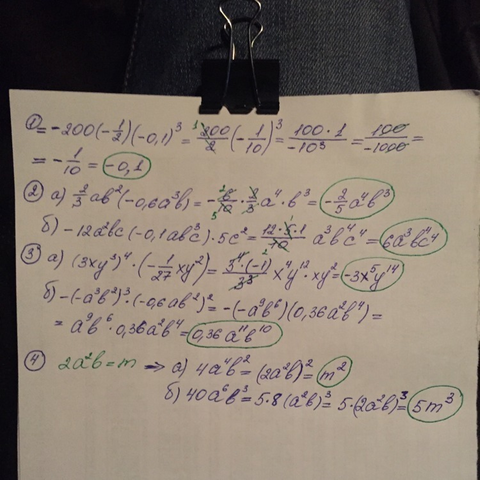 ① = -200(-1/2)(-0,1)³ = 200/2 (-1/10)³ = 100·1/-10³ = 100/-1000 =
= -1/10 = -0,1
② а) 2/3 ab²(-0,6a³b) = -6/10 · 2/3 a⁴·b³ = -2/5 a⁴b³
б) -12a²bc(-0,1abc³)·5c² = 12·5·1/10 a³b²c⁴ = 6a³b²c⁴
③ а) (3xy³)⁴·(-1/27 xy²) = 3⁴·(-1)/3³ x⁴y¹²·xy² = -3x⁵y¹⁴
б) -(-a³b²)³·(-0,6ab²)² = -(-a⁹b⁶)(0,36a²b⁴) =
= a⁹b⁶·0,36a²b⁴ = 0,36a¹¹b¹⁰
④ 2a²b = m → а) 4a⁴b² = (2a²b)² = m²
б) 40a⁶b³ = 5·8(a²b)³ = 5·(2a²b)³ = 5m³